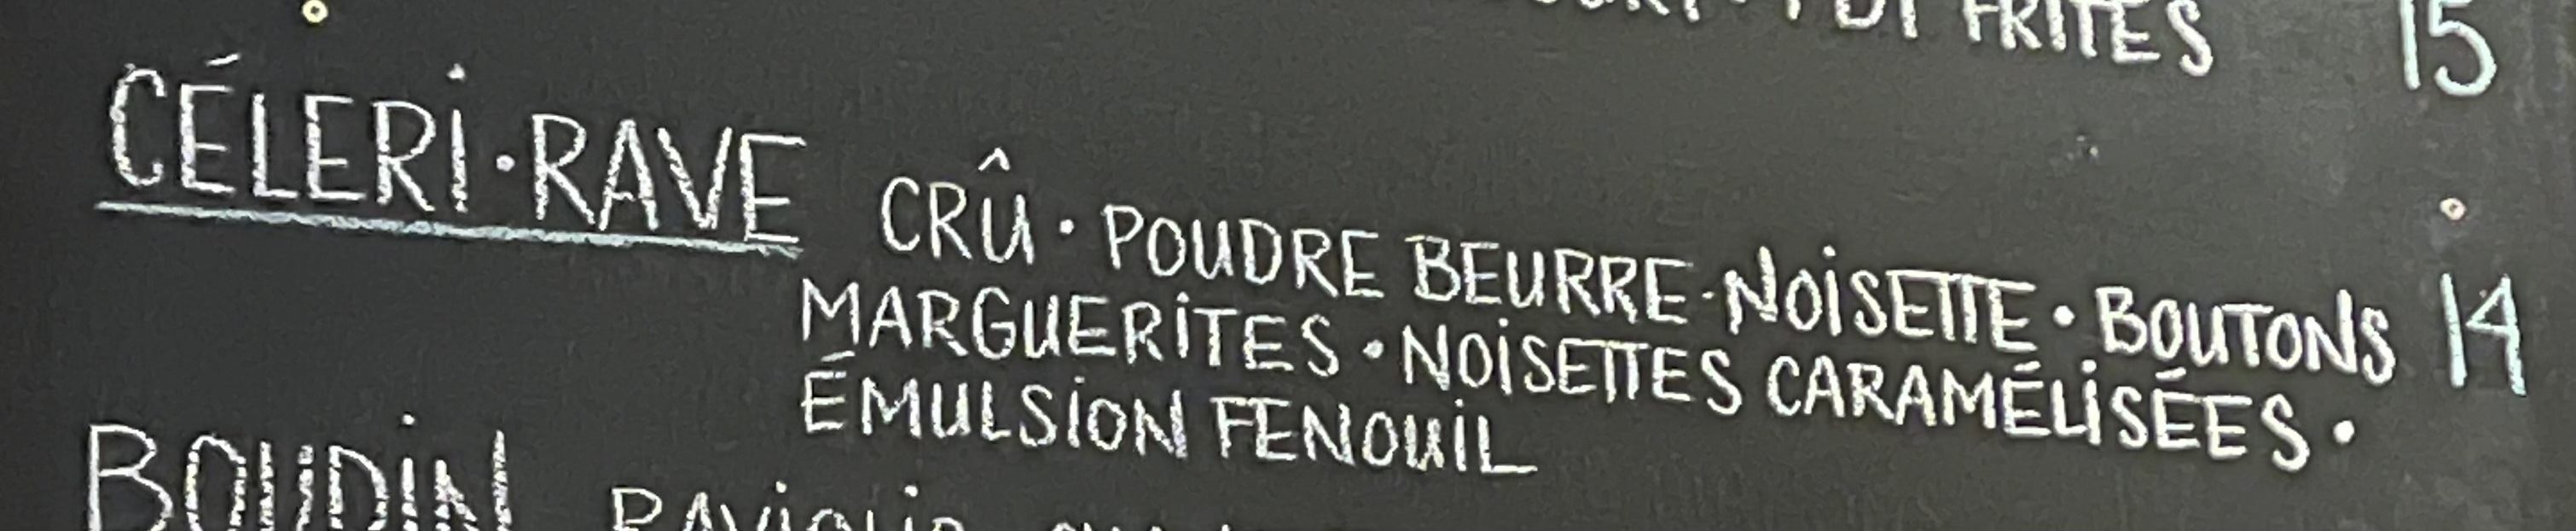 FRITES 15
CÉLERI·RAVE CRÛ · POUDRE BEURRE·NOISETTE · BOUTONS 14
MARGUERITES · NOISETTES CARAMÉLISÉES ·
ÉMULSION FENOUIL
BOUDIN